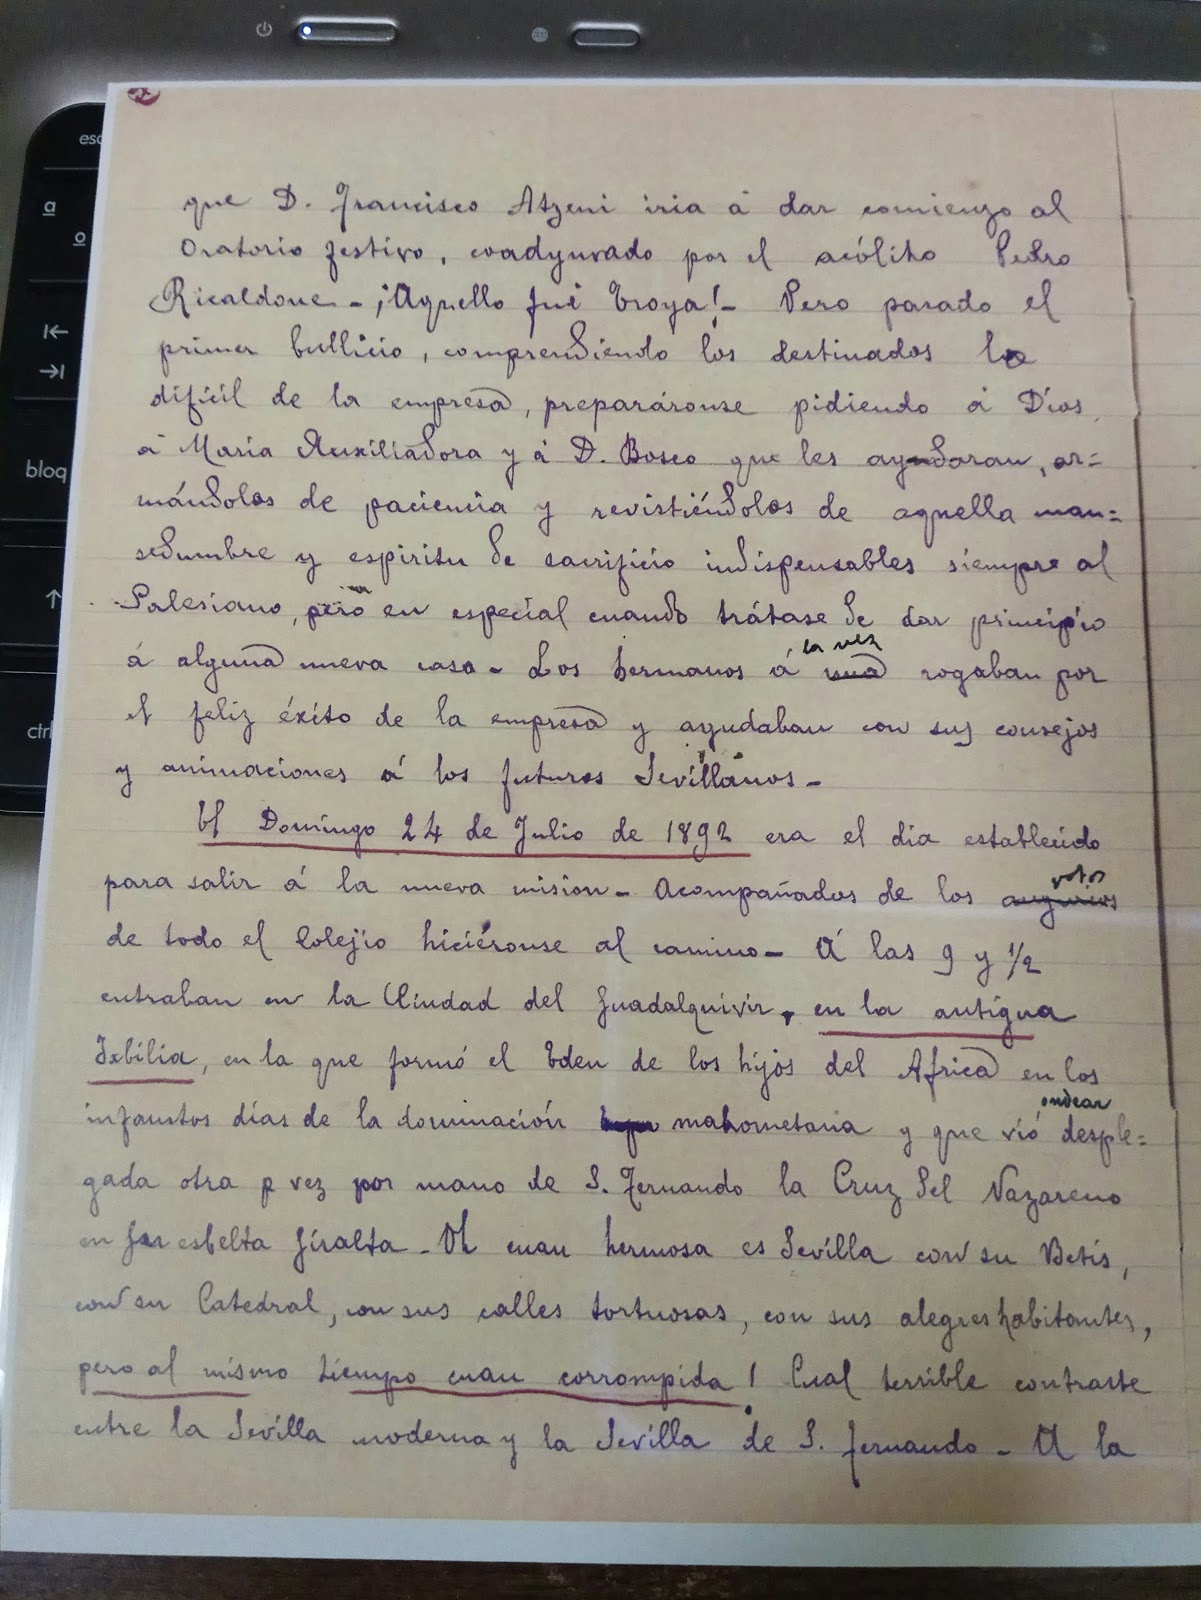 esc
a
o
bloq
ctrl
que D. Francisco Atzeni iria á dar comienzo al
Oratorio festivo, coadyuvado por el acólito Pedro
Ricaldone - ¡Aquello fué Troya! - Pero pasado el
primer bullicio, comprendiendo los destinados lo
dificil de la empresa, preparáronse pidiendo á Dios,
á María Auxiliadora y á D. Bosco que les ayudaran, ar=
mándolos de paciencia y revistiéndolos de aquella man=
sedumbre y espiritu de sacrificio indispensables siempre al
Salesiano, pero en especial cuando trátase de dar principio
á alguna nueva casa - Los hermanos á una la vez rogaban por
el feliz éxito de la empresa y ayudaban con sus consejos
y animaciones á los futuros Sevillanos -
El Domingo 24 de Julio de 1892 era el dia establecido
para salir á la nueva mision - Acompañados de los augurios votos
de todo el Colejio hiciéronse al camino - Á las 9 y 1/2
entraban en la Ciudad del Guadalquivir, en la antigua
Ixbilia, en la que formó el Eden de los hijos del Africa en los
infaustos días de la dominación mahometana y que vió ondear desple=
gada otra p vez por mano de S. Fernando la Cruz del Nazareno
en esbelta Giralta - Oh cuan hermosa es Sevilla con su Betis,
con su Catedral, con sus calles tortuosas, con sus alegres habitantes,
pero al mismo tiempo cuan corrompida! Cual terrible contraste
entre la Sevilla moderna y la Sevilla de S. Fernando - A la